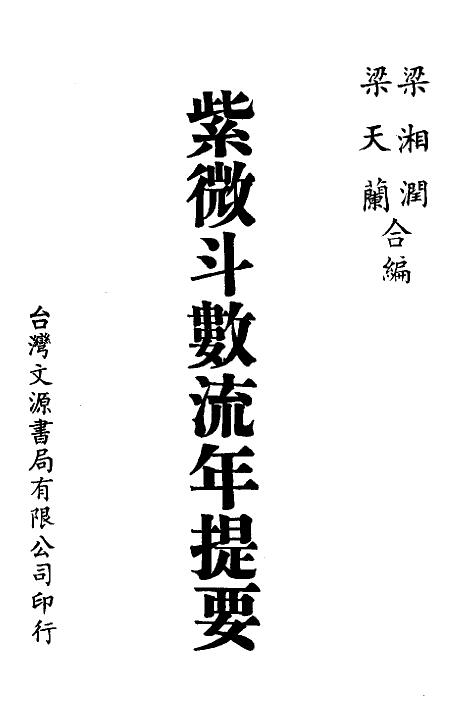 梁湘潤
梁天蘭
合編
紫微斗數流年提要
台灣文源書局有限公司印行